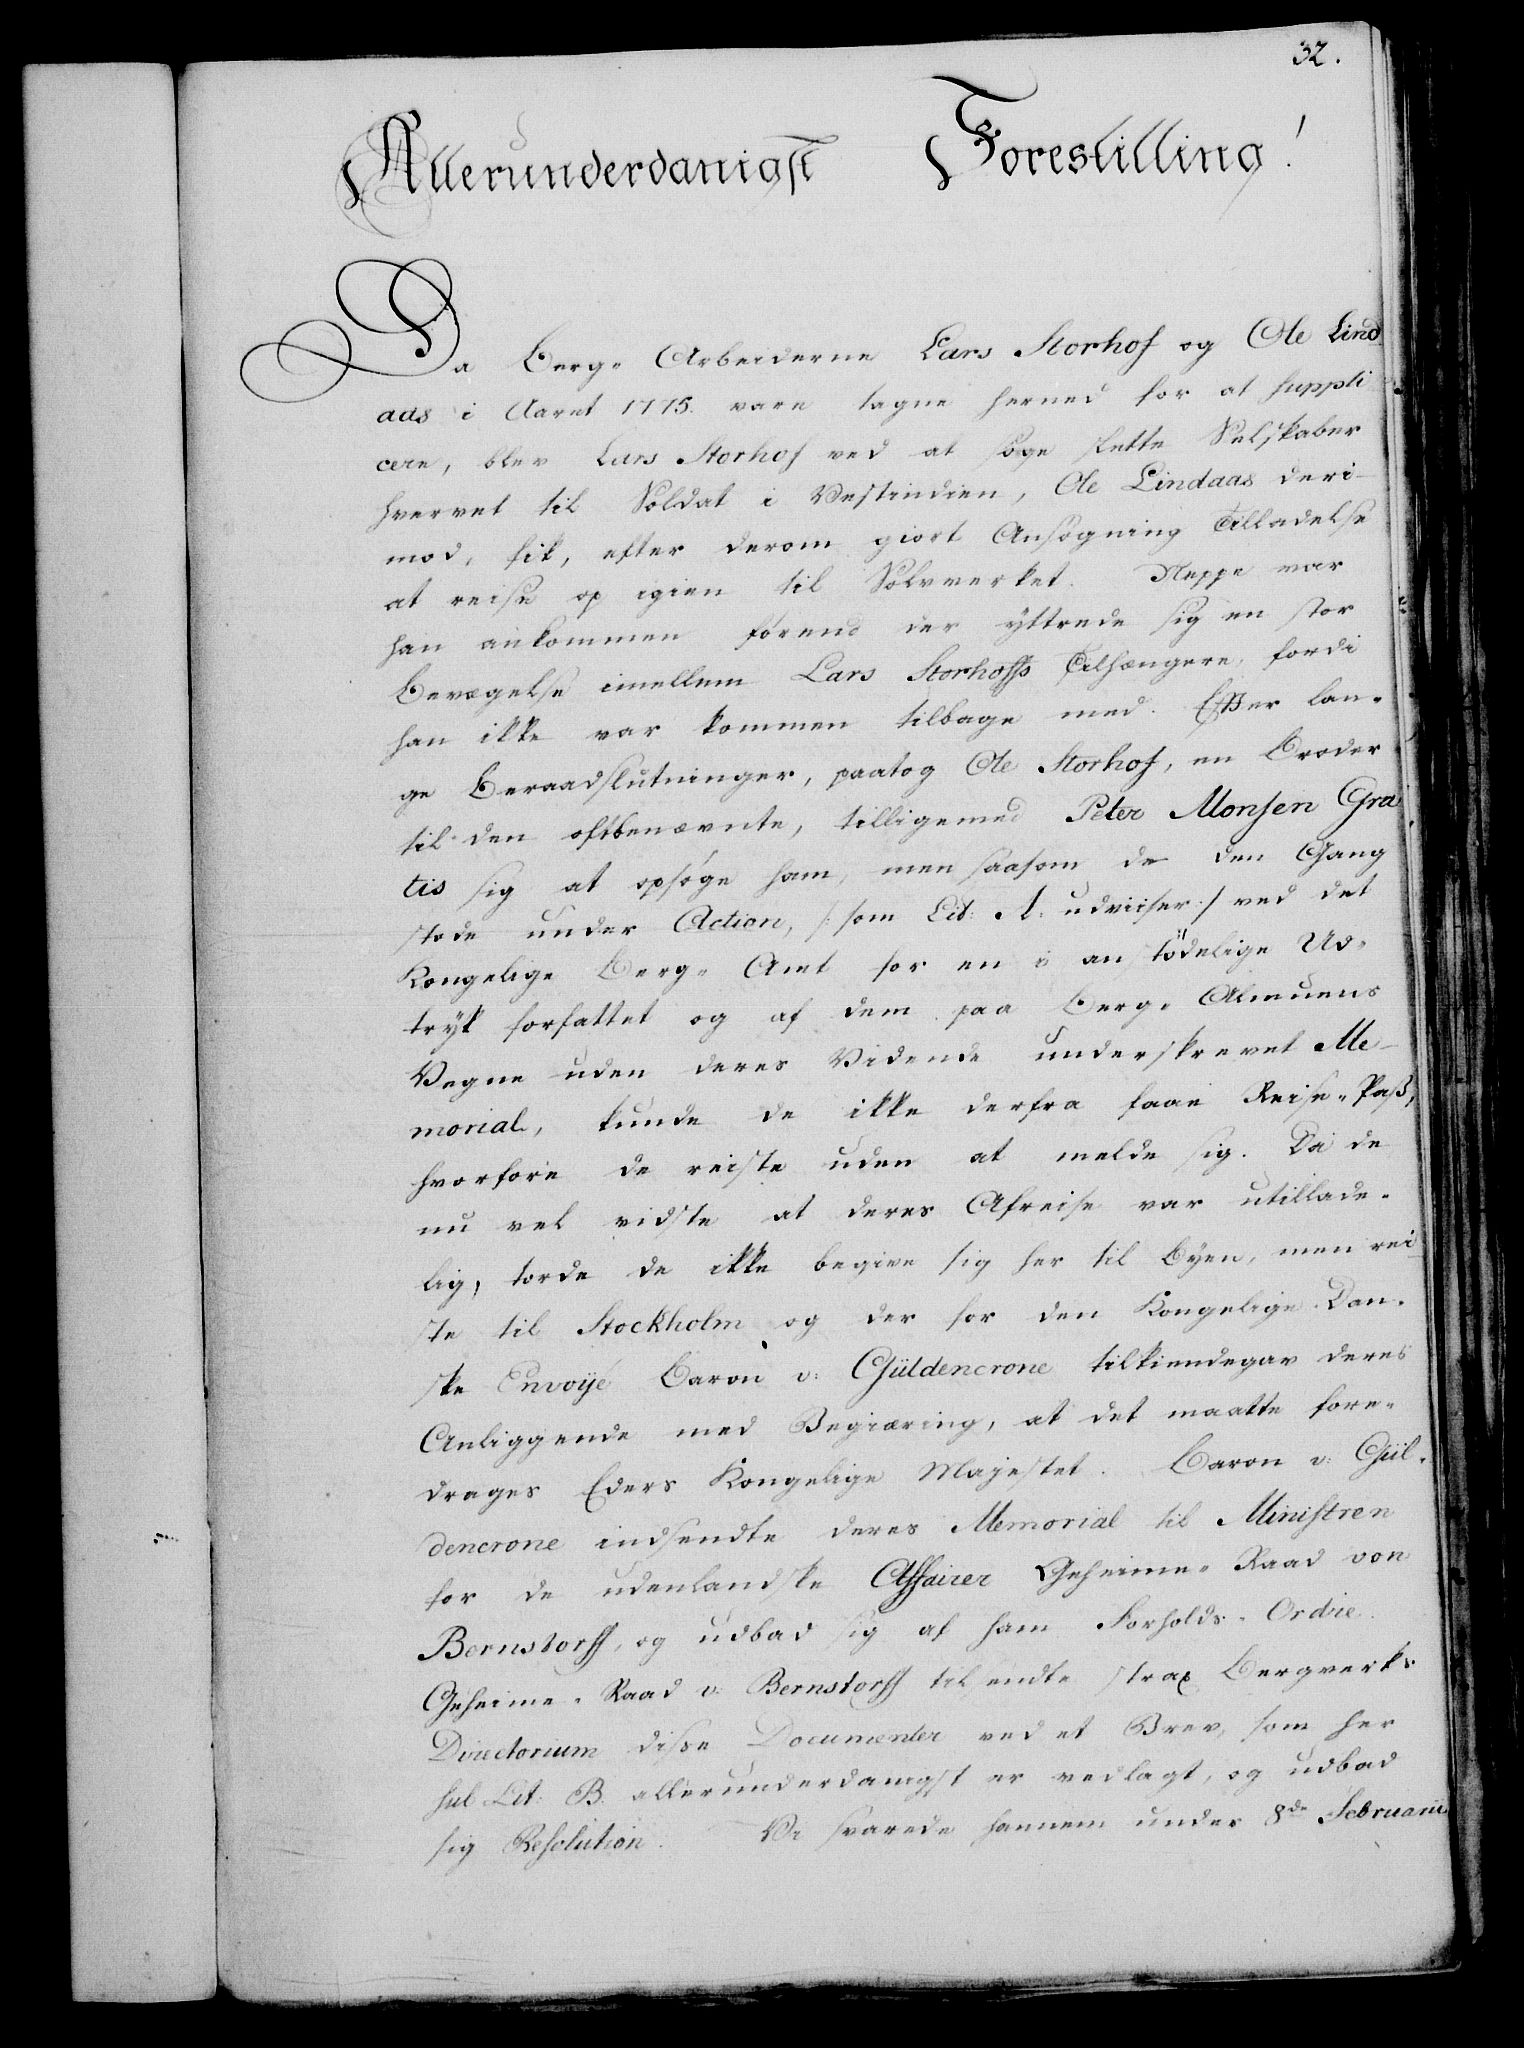 32.
Allerunderdanigst Forestilling!
Da Berg-Arbeiderne Lars Storhof og Ole Lind
aas i Aaret 1775. vare tagne herned for at suppli
cere, blev Lars Storhof ved at søge slette Selskaber
hvervet til Soldat i Vestindien, Ole Lindaas deri-
mod, fik, efter derom giort Ansøgning Tilladelse
at reise op igien til Sølvverket. Neppe var
han ankommen førend der yttrede sig en stor
Bevægelse imellem Lars Storhoffs Tilhængere, fordi
han ikke var kommen tilbage med. Efter lan-
ge Beraadslutninger, paatog Ole Storhof, en Broder
til den oftbenævnte, tilligemed Peter Monsen Gra
tis sig at opsøge ham, men saasom de den Gang
stode under Action, /: som Lit: A: udviiser :/ ved det
Kongelige Berg-Amt for en i an stødelige Ud-
tryk forfattet og af dem paa Berg-Almuens
Vegne uden deres Vidende underskrevet Me-
morial, kunde de ikke derfra faae Reise-Paß,
hvorfore de reiste uden at melde sig. Da de
nu vel vidste at deres Afreise var utillade-
lig, torde de ikke begive sig her til Byen, men rei
ste til Stockholm og der for den Kongelige Dan-
ske Envoijé Baron v: Güldencrone tilkiendegav deres
Anliggende med Begiæring, at det maatte fore-
drages Eders Kongelige Majestet. Baron v: Gül-
dencrone indsendte deres Memorial til Ministren
for de udenlandske Affairer Geheime-Raad von
Bernstorff, og udbad sig af ham Forholds-Ordre.
Geheime-Raad v: Bernstorff tilsendte strax Bergverks
Directorium disse Documenter ved et Brev, som her
sub Lit: B. allerunderdanigst er vedlagt, og udbad
sig Resolution. Vi svarede hannem under 8de Februarii